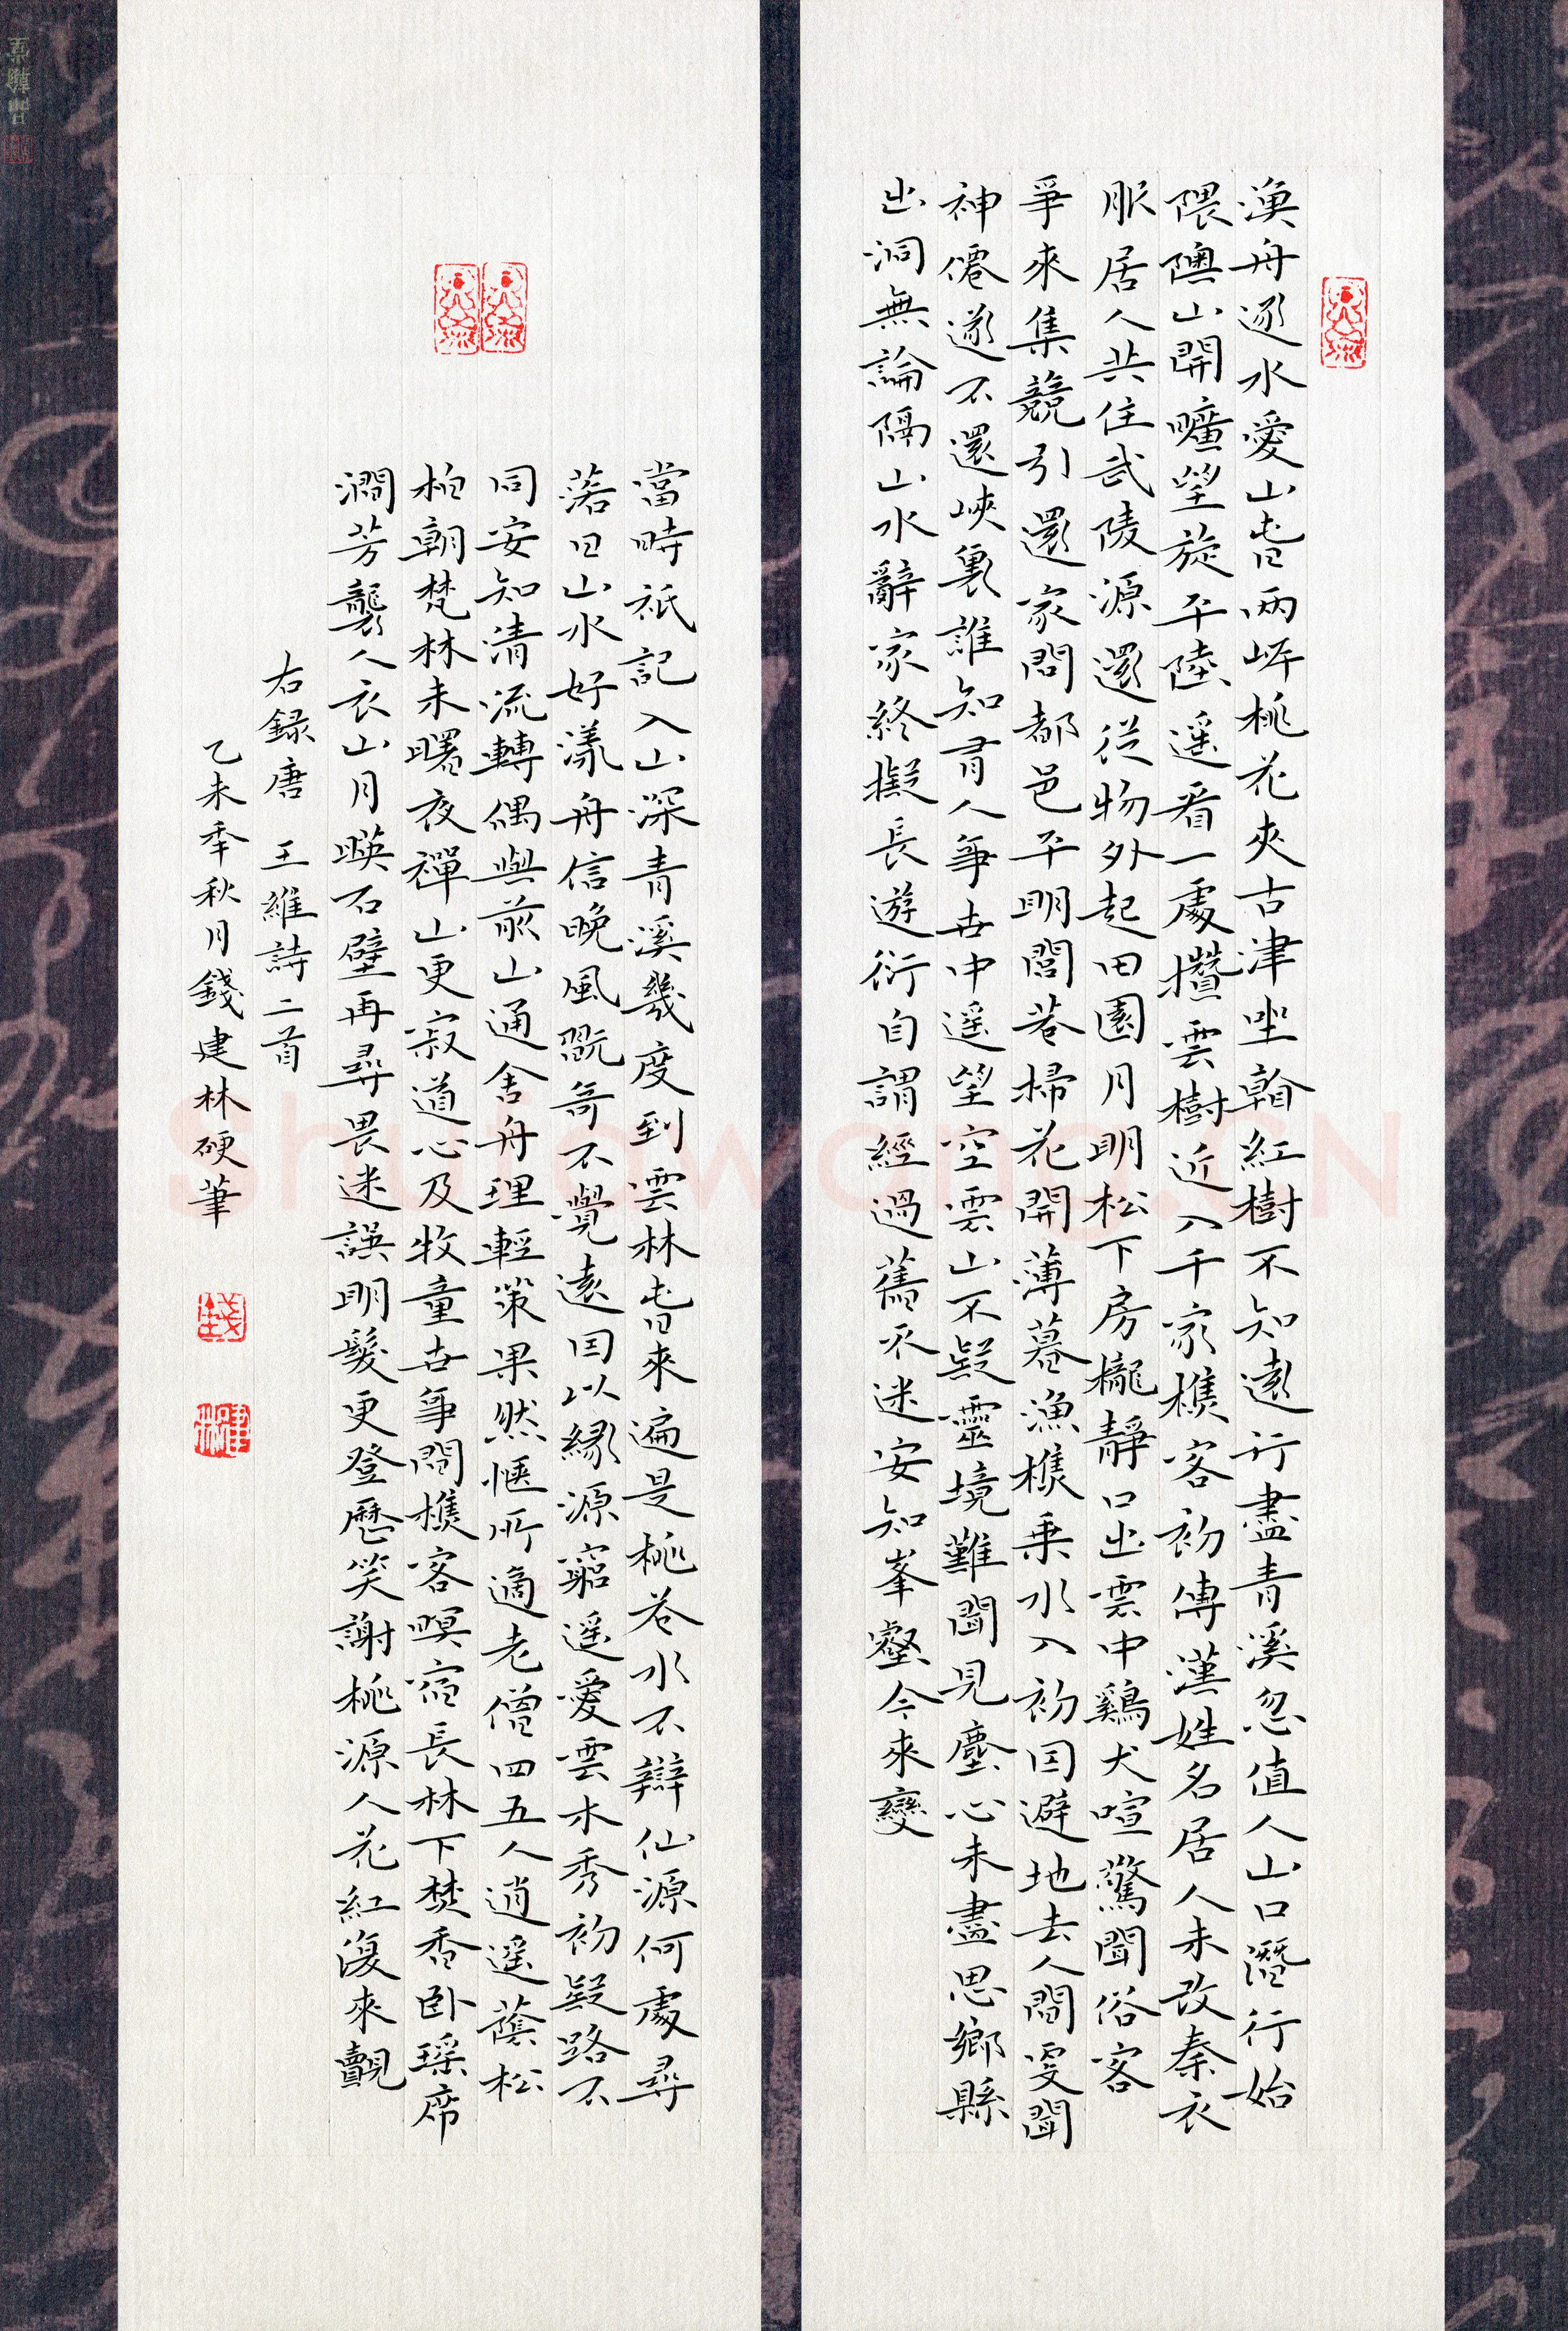 漁舟逐水愛山旾兩岸桃花夾古津坐看紅樹不知遠行盡青溪忽值人山口潛行始
隈隩山開曠望旋平陸遥看一處攢雲樹近入千家樵客初傳漢姓名居人未改秦衣
服居人共住武陵源還從物外起田園月明松下房櫳靜口出雲中鷄犬喧驚聞俗客
爭來集競引還家問都邑平明閭巷掃花開薄暮漁樵乗水入初因避地去人間更聞
神僊遂不還峽裏誰知有人事世中遥望空雲山不疑靈境難聞見塵心未盡思鄉縣
出洞無論隔山水辭家終擬長遊衍自謂經過舊不迷安知峯壑今來變
當時祇記入山深青溪幾度到雲林旾來遍是桃花水不辯仙源何處尋
落日山水好漾舟信晚風翫奇不覺遠因以緣源窮遥愛雲木秀初疑路不
同安知清流轉偶與前山通舍舟理輕策果然愜所適老僧四五人逍遥蔭松
柏朝梵林未曙夜禪山更寂道心及牧童世事問樵客暝宿長林下焚香卧瑶席
澗芳襲人衣山月暎石壁再尋畏迷誤明髮更登歷笑謝桃源人花紅復來覿
右録唐 王維詩二首
乙未年秋月錢建林硬筆
錢
建林